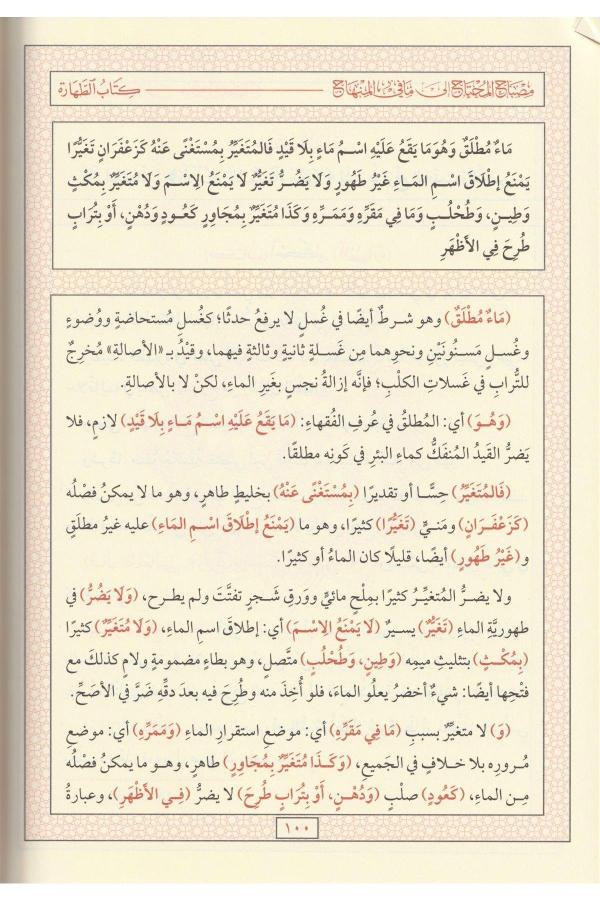 مصباح المحتاج إلى ما في المنهاج
كتاب الطهارة
مَاءٌ مُطْلَقٌ وَهُوَ مَا يَقَعُ عَلَيْهِ اسْمُ مَاءٍ بِلَا قَيْدٍ فَالمُتَغَيِّرُ بِمُسْتَغْنًى عَنْهُ كَزَعْفَرَانٍ تَغَيُّرًا
يَمْنَعُ إطْلَاقَ اسْمِ المَاءِ غَيْرُ طَهُورٍ وَلَا يَضُرُّ تَغَيُّرٌ لَا يَمْنَعُ الِاسْمَ وَلَا مُتَغَيِّرٌ بِمُكْثٍ
وَطِينٍ، وَطُحْلُبٍ وَمَا فِي مَقَرِّهِ وَمَمَرِّهِ وَكَذَا مُتَغَيِّرٌ بِمُجَاوِرٍ كَعُودٍ وَدُهْنٍ، أَوْ بِتُرَابٍ
طُرِحَ فِي الأَظْهَرِ
(مَاءٌ مُطْلَقٌ) وهو شرطٌ أيضًا في غُسلٍ لا يرفعُ حدثًا؛ كغُسلِ مُستحاضةٍ ووُضوءٍ
وغُسلٍ مَسنُونَيْنِ ونحوِهما مِن غَسلةٍ ثانيةٍ وثالثةٍ فيهما، وقيْدُ بـ «الأصالةِ» مُخرِجٌ
للتُّرابِ في غَسلات الكلْبِ؛ فإنَّه إزالةُ نجسٍ بغَيرِ الماءِ، لكنْ لا بالأصالةِ.
(وَهُوَ) أي: المُطلقُ في عُرفِ الفُقهاءِ: (مَا يَقَعُ عَلَيْهِ اسْمُ مَاءٍ بِلَا قَيْدٍ) لازمٍ، فلا
يَضرُّ القَيدُ المُنفَكُّ كماءِ البئرِ في كَونِه مطلقًا.
(فَالمُتَغَيِّرُ) حِسًّا أو تقديرًا (بِمُسْتَغْنًى عَنْهُ) بخليطٍ طاهرٍ، وهو ما لا يمكنُ فصْلُه
(كَزَعْفَرَانٍ) ومَنيٍّ (تَغَيُّرًا) كثيرًا، وهو ما (يَمْنَعُ إطْلَاقَ اسْمِ المَاءِ) عليه غيرُ مطلَقٍ
و(غَيْرُ طَهُورٍ) أيضًا، قليلًا كان الماءُ أو كثيرًا.
ولا يضرُّ المُتغيِّرُ كثيرًا بمِلْحٍ مائيٍّ ووَرقِ شَجرٍ تفتَّتَ ولم يطرح، (وَلَا يَضُرُّ) في
طهوريَّةِ الماءِ (تَغَيُّرٌ) يسيرٌ (لَا يَمْنَعُ الِاسْمَ) أي: إطلاقَ اسمِ الماءِ، (وَلَا مُتَغَيِّرٌ) كثيرًا
(بِمُكْثٍ) بتثليثِ ميمِه (وَطِينٍ، وَطُحْلُبٍ) متَّصلٍ، وهو بطاءٍ مضمومةٍ ولامٍ كذلكَ مع
فتْحِها أيضًا: شيءٌ أخضرُ يعلُو الماءَ، فلو أُخذَ منه وطُرِحَ فيه بعدَ دقِّهِ ضَرَّ في الأصَحِّ.
(وَ) لا متغيِّرٌ بسببِ (مَا فِي مَقَرِّهِ) أي: موضعِ استقرارِ الماءِ (وَمَمَرِّهِ) أي: موضعِ
مُرورِه بلا خلافٍ في الجَميعِ، (وَكَذَا مُتَغَيِّرٌ بِمُجَاوِرٍ) طاهرٍ، وهو ما يمكنُ فصْلُه
مِن الماءِ، (كَعُودٍ) صلْبٍ (وَدُهْنٍ، أَوْ بِتُرَابٍ طُرِحَ) لا يضرُّ (فِي الأَظْهَرِ)، وعبارةُ
١٠٠